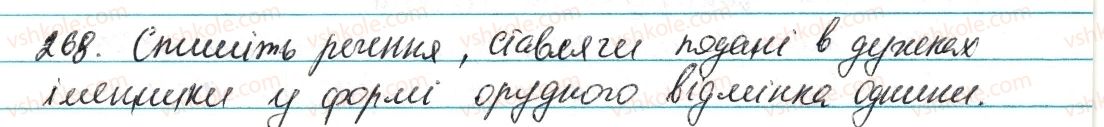 268. Спишіть речення, ставлячи подані в дужках
іменники у формі орудного відмінка однини.